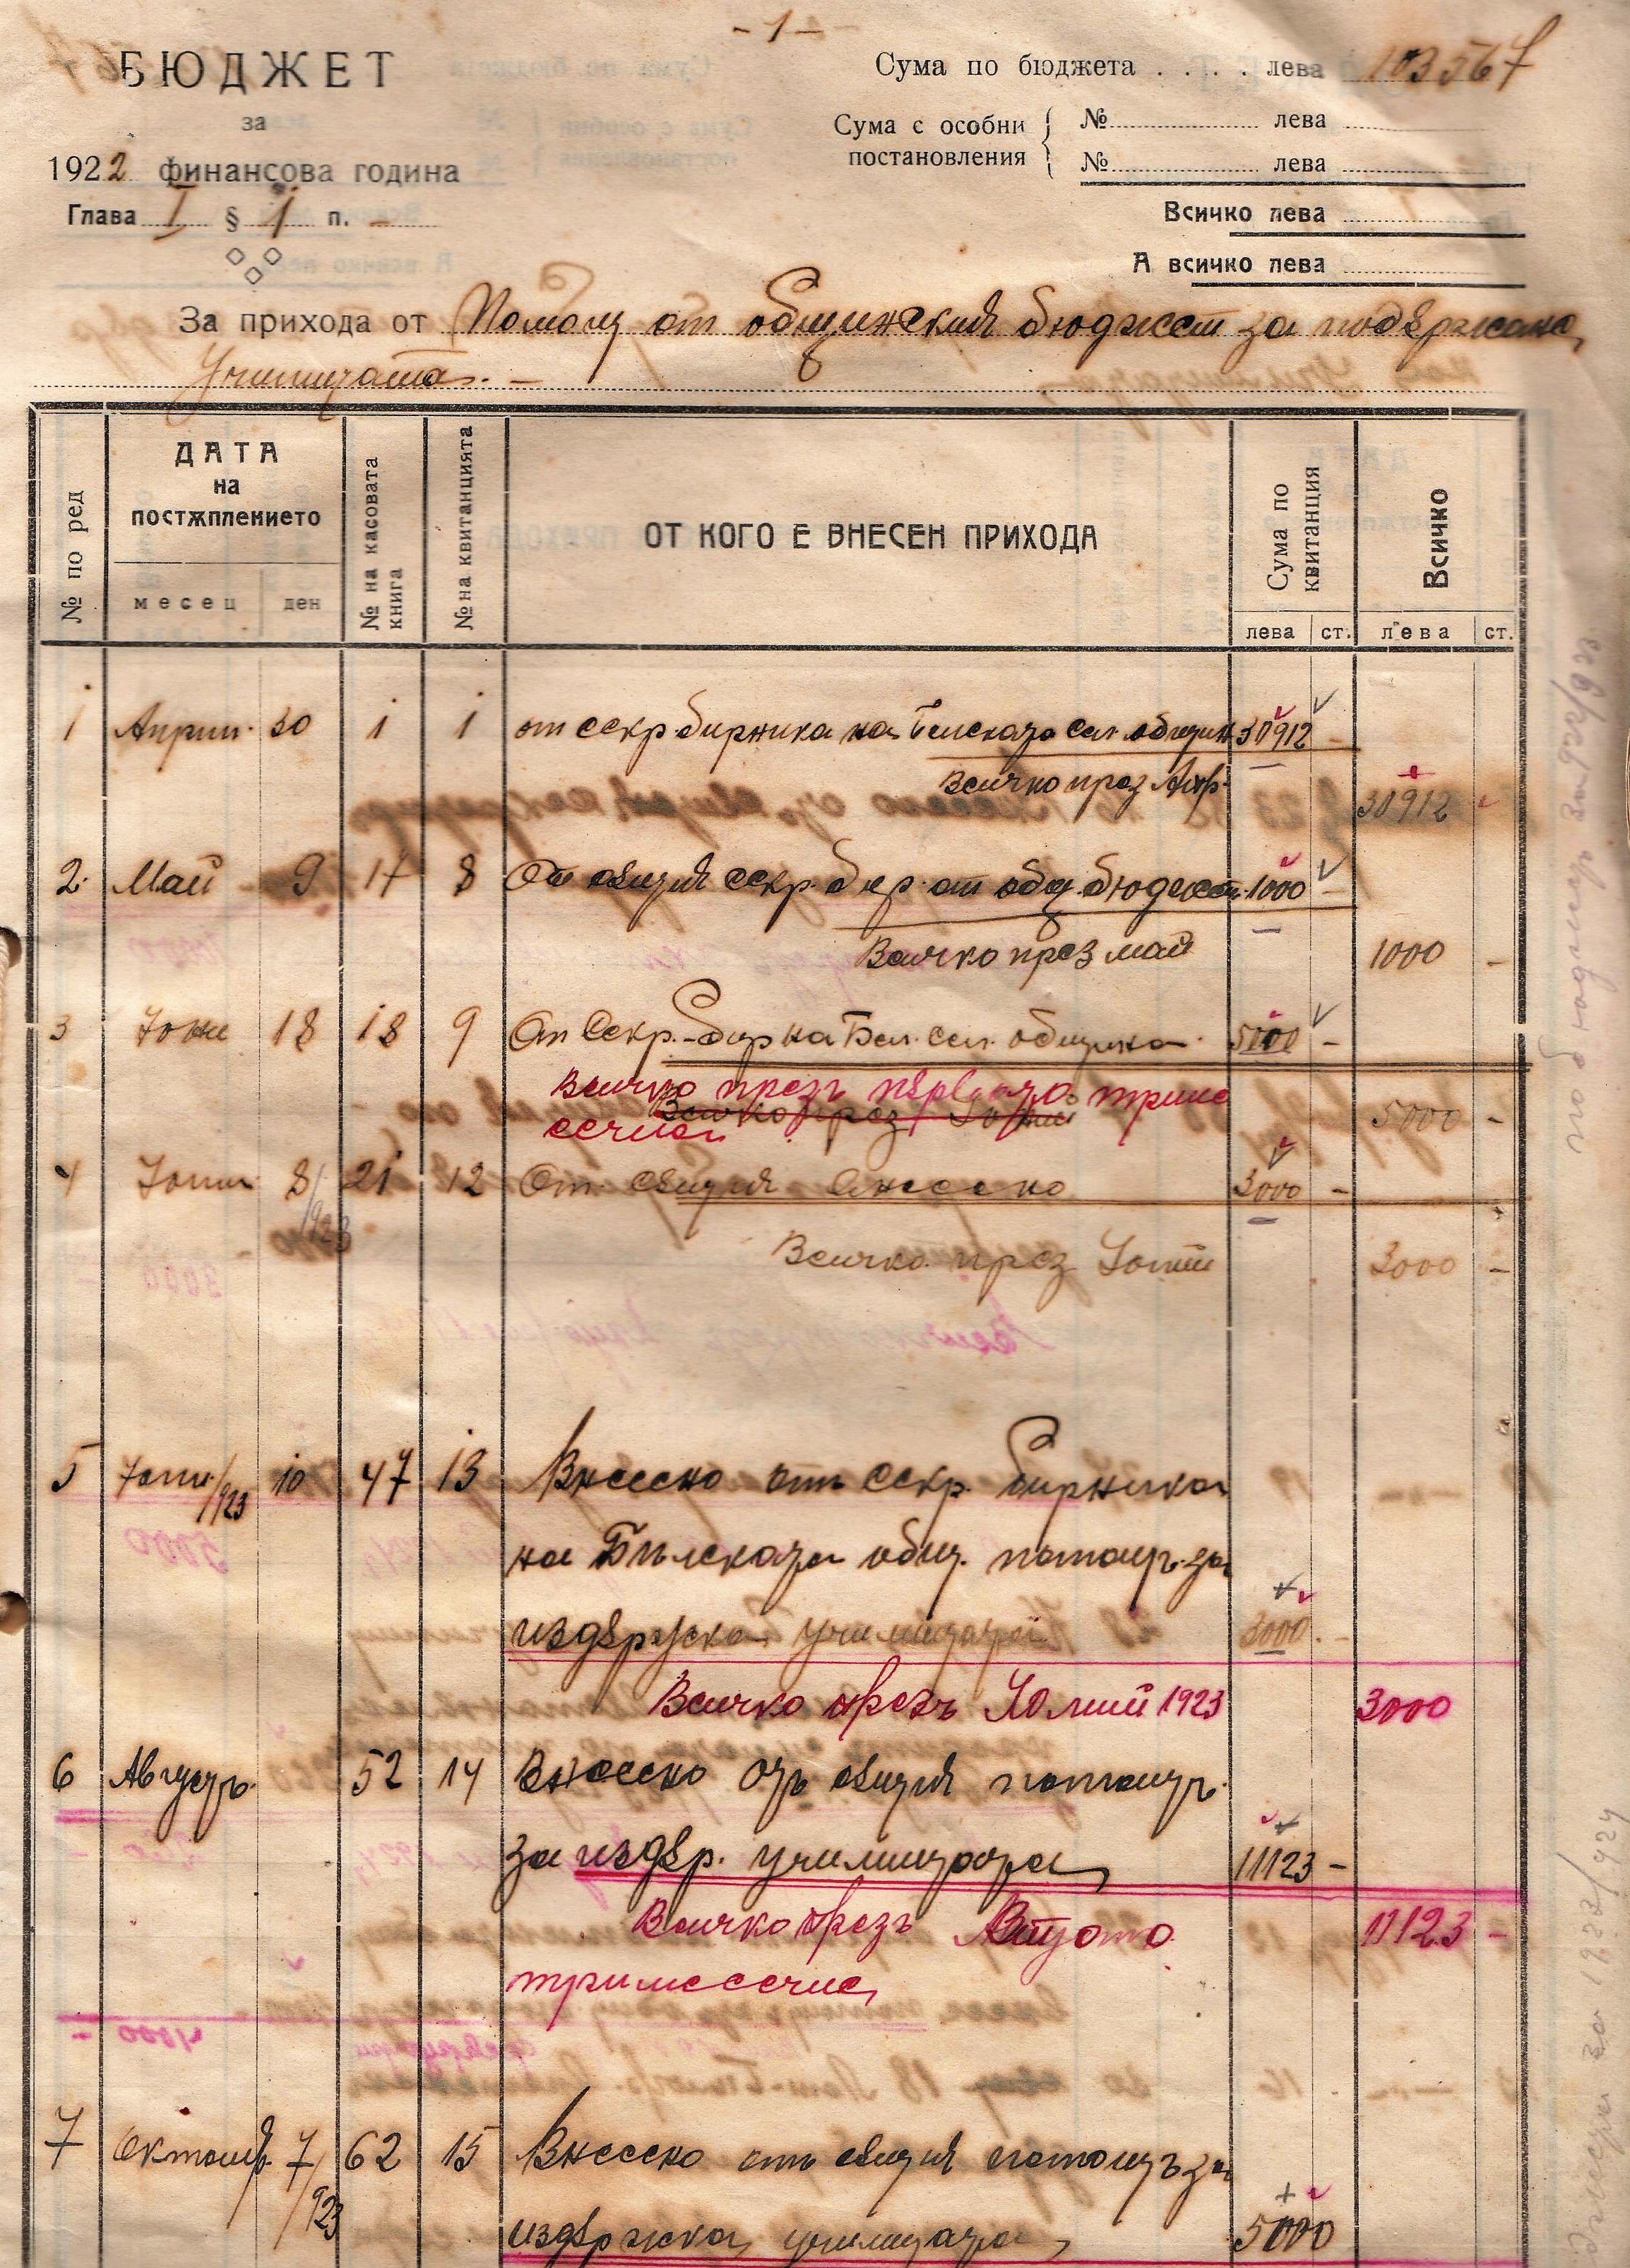 - 1 -
БЮДЖЕТ
за
1922 финансова година
Глава I § 1 п. -
Сума по бюджета . . . . лева 103567
Сума с особни постановления
№ лева
№ лева
Всичко лева
А всичко лева
За прихода от Помощ от общинския бюджет за подържане
Училищата. -
№ по ред
ДАТА
на
постѫплението
месец
ден
№ на касовата книга
№ на квитанцията
ОТ КОГО Е ВНЕСЕН ПРИХОДА
Сума по квитанция
лева ст.
Всичко
лева ст.
1 Април. 30 1 1 от секр. бирника на Белската сел. общин 30912 -
Всичко през Апр. 30912
2. Май 9 17 8 От същия секр. бир. от общ. бюджет. 1000 -
Всичко през май 1000 -
3 Юни 18 18 9 От Секр.-бир на Бел. сел. община. 5000 -
Всичко презъ първото триме
сечие
Всичко през Юний 5000 -
4 Юлий 8/923 21 12 От същия внесено 3000 -
Всичко през Юлий 3000 -
5 Юлий/923 10 47 13 Внесено отъ секр. бирника
на Бѣлската общ. помощъ за
издръжка училищата 3000. -
Всичко презъ Юлий 1923 3000
6 Августъ. 52 14 Внесено отъ същия помощъ.
за издър. училищата 11123 -
Всичко презъ Второто 11123 -
тримесечие
7 Октомвр. 7/923 62 15 Внесено отъ същия помощъ за
издържка училищата 5000